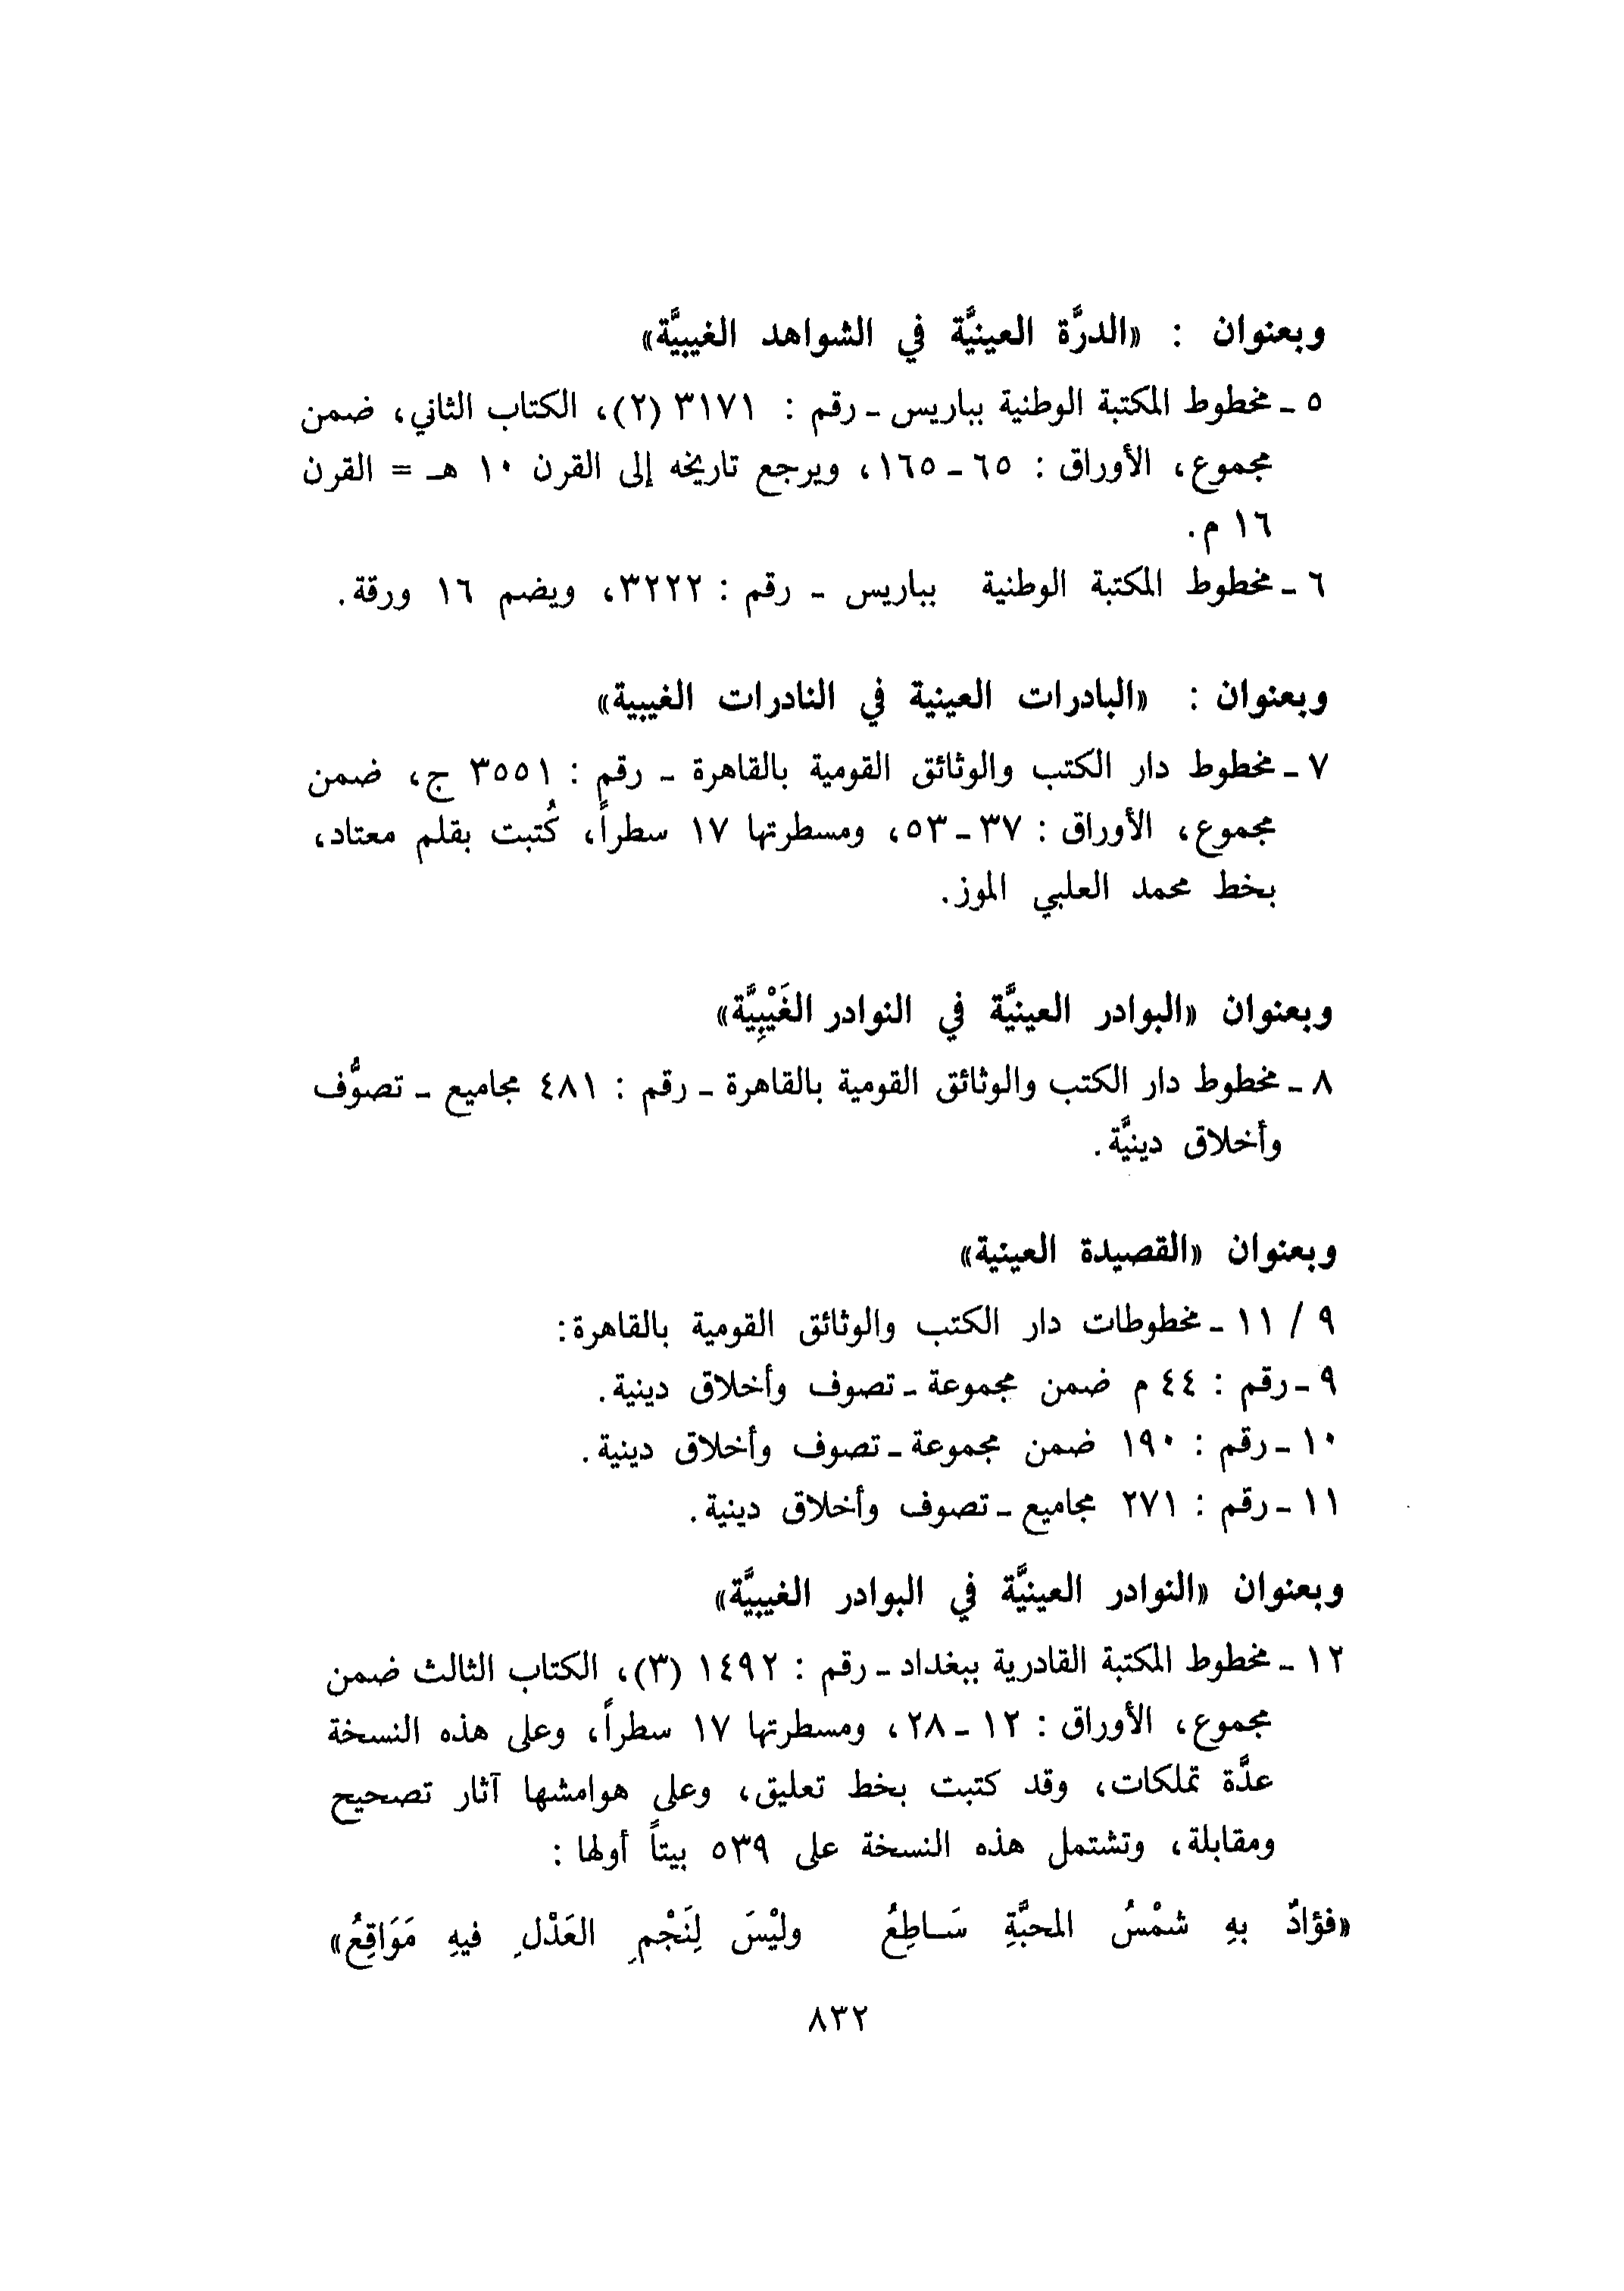 وبعنوان : «الدرَّة العينيَّة في الشواهد الغيبيَّة»
٥ - مخطوط المكتبة الوطنية بباريس - رقم : ٣١٧١ (٢)، الكتاب الثاني، ضمن
مجموع، الأوراق : ٦٥ - ١٦٥، ويرجع تاريخه إلى القرن ١٠ هـ = القرن
١٦ م.
٦ - مخطوط المكتبة الوطنية بباريس - رقم : ٣٢٢٢، ويضم ١٦ ورقة.
وبعنوان : «البادرات العينية في النادرات الغيبية»
٧ - مخطوط دار الكتب والوثائق القومية بالقاهرة - رقم : ٣٥٥١ ج، ضمن
مجموع، الأوراق : ٣٧ - ٥٣، ومسطرتها ١٧ سطراً، كُتبت بقلم معتاد،
بخط محمد العلبي الموز.
وبعنوان «البوادر العينيَّة في النوادر الغَيْبِيَّة»
٨ - مخطوط دار الكتب والوثائق القومية بالقاهرة - رقم : ٤٨١ مجاميع - تصوُّف
وأخلاق دينيَّة.
وبعنوان «القصيدة العينية»
٩ / ١١ - مخطوطات دار الكتب والوثائق القومية بالقاهرة:
٩ - رقم : ٤٤ م ضمن مجموعة - تصوف وأخلاق دينية.
١٠ - رقم : ١٩٠ ضمن مجموعة - تصوف وأخلاق دينية.
١١ - رقم : ٢٧١ مجاميع - تصوف وأخلاق دينية.
وبعنوان «النوادر العينيَّة في البوادر الغيبيَّة»
١٢ - مخطوط المكتبة القادرية ببغداد - رقم : ١٤٩٢ (٣)، الكتاب الثالث ضمن
مجموع، الأوراق : ١٢ - ٢٨، ومسطرتها ١٧ سطراً، وعلى هذه النسخة
عدَّة تملكات، وقد كتبت بخط تعليق، وعلى هوامشها آثار تصحيح
ومقابلة، وتشتمل هذه النسخة على ٥٣٩ بيتاً أولها :
«فؤادٌ بهِ شمْسُ المحبَّةِ سَـاطِعُ وليْسَ لِنَجْمِ العَذْلِ فيهِ مَوَاقِعُ»
٨٣٢